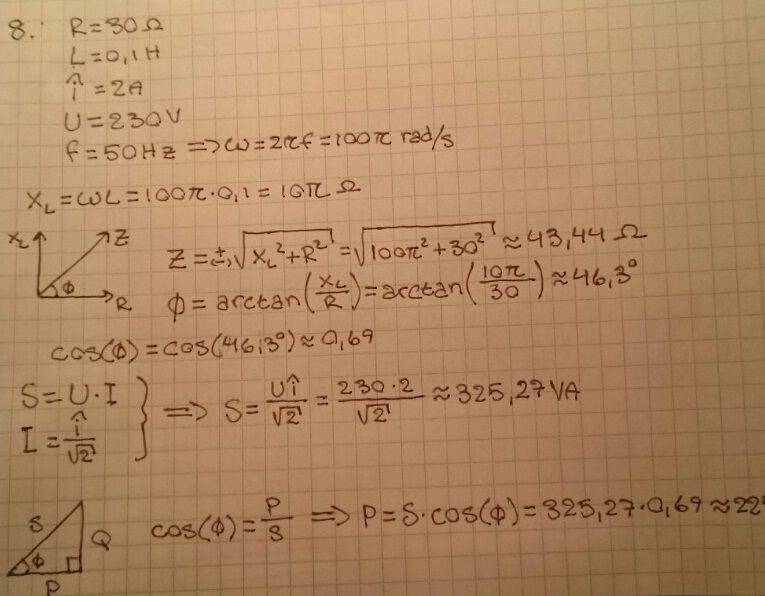 8. R=30Ω
L=0,1H
î=2A
U=230V
f=50Hz => ω=2πf=100π rad/s
X_L=ωL=100π·0,1=10π Ω
X_L Z
φ R
Z=±√(X_L²+R²)=√(100π²+30²)≈43,44 Ω
φ=arctan(X_L/R)=arctan(10π/30)≈46,3°
cos(φ)=cos(46,3°)≈0,69
S=U·I
I=î/√2
=> S=Uî/√2=230·2/√2≈325,27VA
S Q
φ
P
cos(φ)=P/S => P=S·cos(φ)=325,27·0,69≈22